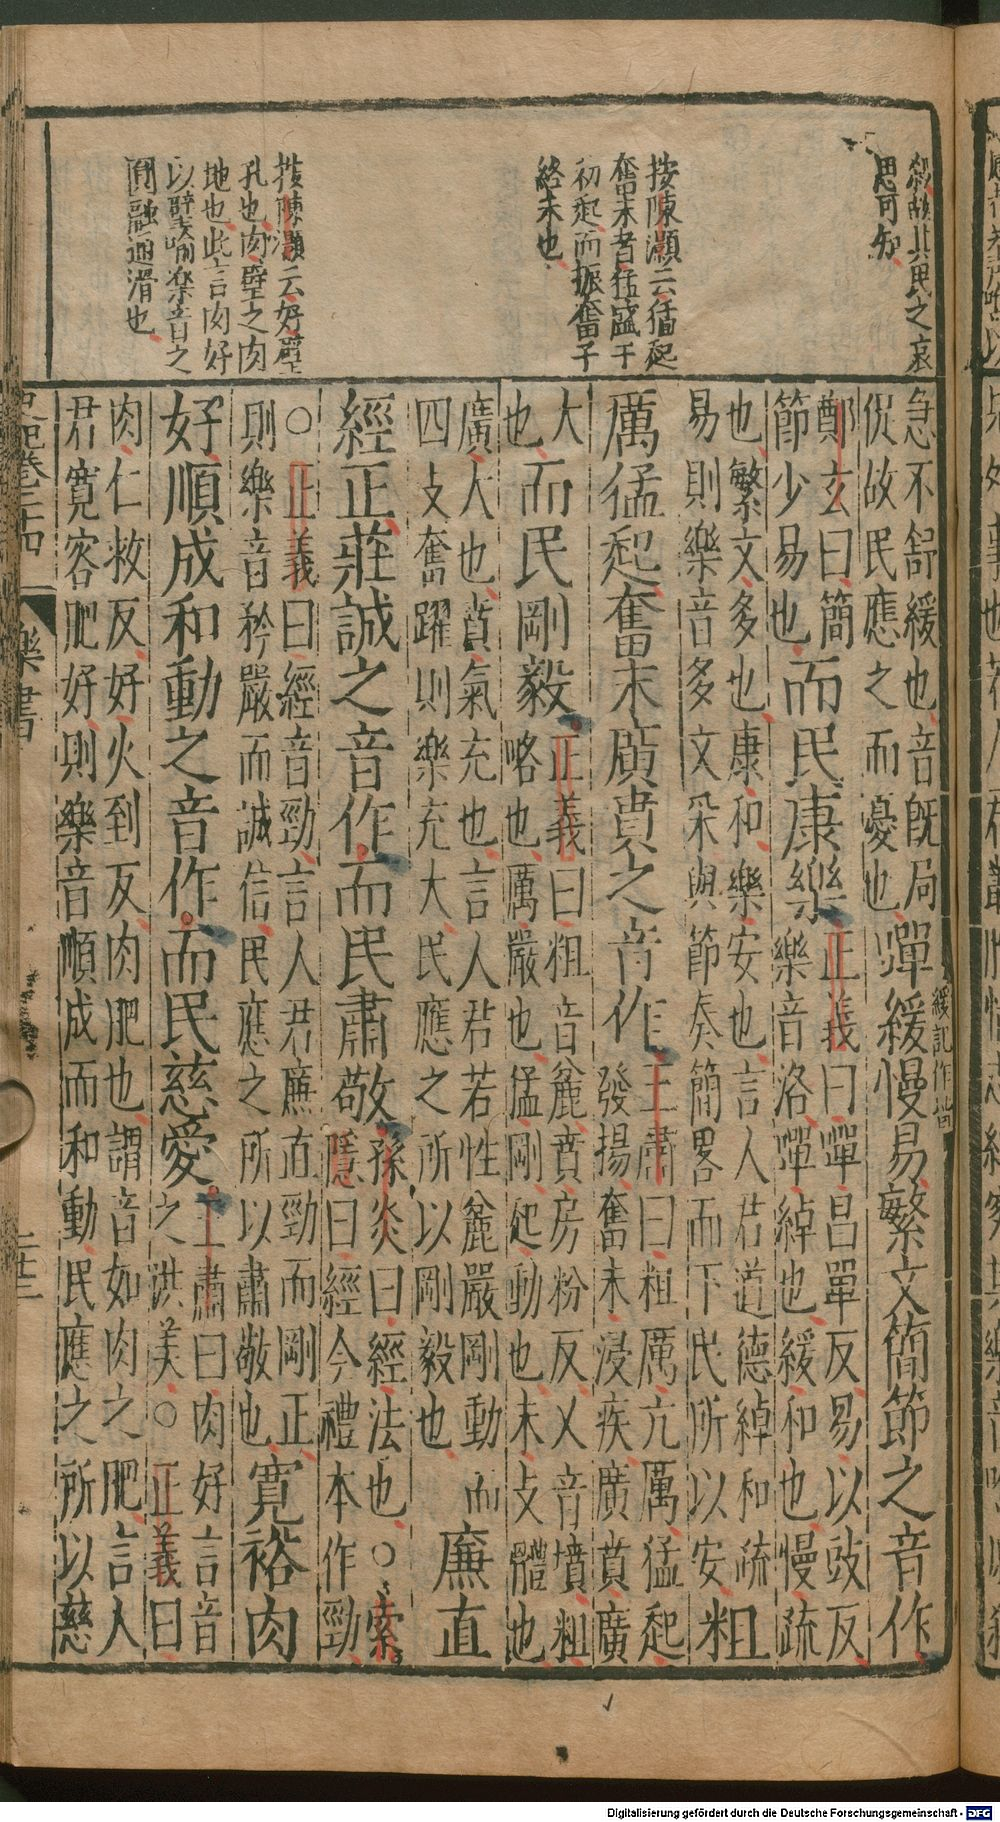 殺故其民之哀
思可知
按陳灝云猛起
奮末者猛盛于
初起而振奮于
終末也
按陳灝云好璧
孔也肉璧之肉
地也此言肉好
以璧喻樂音之
圓融通滑也
急不舒緩也音旣局
促故民應之而憂也
嘽緩慢易繁文簡節之音作
緩記作諧
鄭玄曰簡
節少易也
而民康樂
正義曰嘽昌單反易以豉反
樂音洛嘽綽也緩和也慢疏
也繁文多也康和樂安也言人君道德綽和疏
易則樂音多文采與節奏簡畧而下民所以安
粗
厲猛起奮末廣賁之音作
王肅曰粗厲亢厲猛起
發揚奮末浸疾廣賁廣
大
也
而民剛毅
正義曰粗音麄賁房粉反又音墳粗
略也厲嚴也猛剛起動也末支體也
廣大也賁氣充也言人君若性麄嚴剛動而
四支奮躍則樂充大民應之所以剛毅也
廉直
經正莊誠之音作而民肅敬
孫炎曰經法也○索
隱曰經今禮本作勁
○正義曰經音勁言人君廉直勁而剛正
則樂音矜嚴而誠信民應之所以肅敬也
寬裕肉
好順成和動之音作而民慈愛
王肅曰肉好言音
之洪美○正義曰
肉仁救反好火到反肉肥也謂音如肉之肥言人
君寬容肥好則樂音順成而和動民應之所以慈
史記卷二十四
樂書
二十三
Digitalisierung gefördert durch die Deutsche Forschungsgemeinschaft - DFG